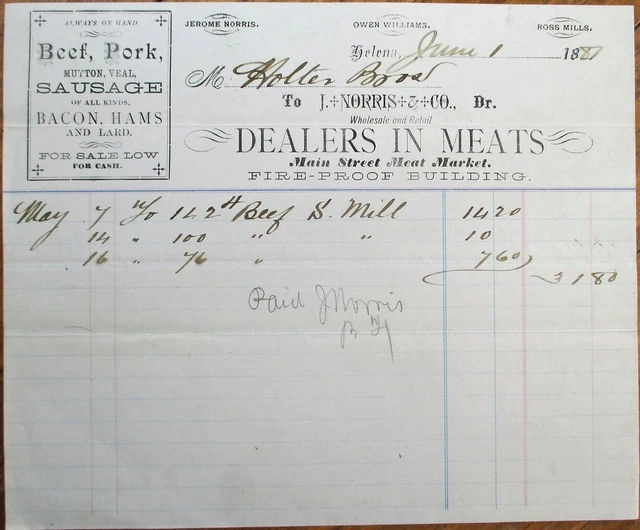 ALWAYS ON HAND
Beef, Pork,
MUTTON, VEAL,
SAUSAGE
OF ALL KINDS,
BACON, HAMS
AND LARD.
FOR SALE LOW
FOR CASH.
JEROME NORRIS. OWEN WILLIAMS. ROSS MILLS.
Helena, June 1 1881
M Holter Bros
To J. NORRIS & CO., Dr.
Wholesale and Retail
DEALERS IN MEATS
Main Street Meat Market.
FIRE-PROOF BUILDING.
May 7 To 142# Beef S. Mill 14 20
14 " 100 " " 10
16 " 76 " 7 60
31 80
Paid J Norris